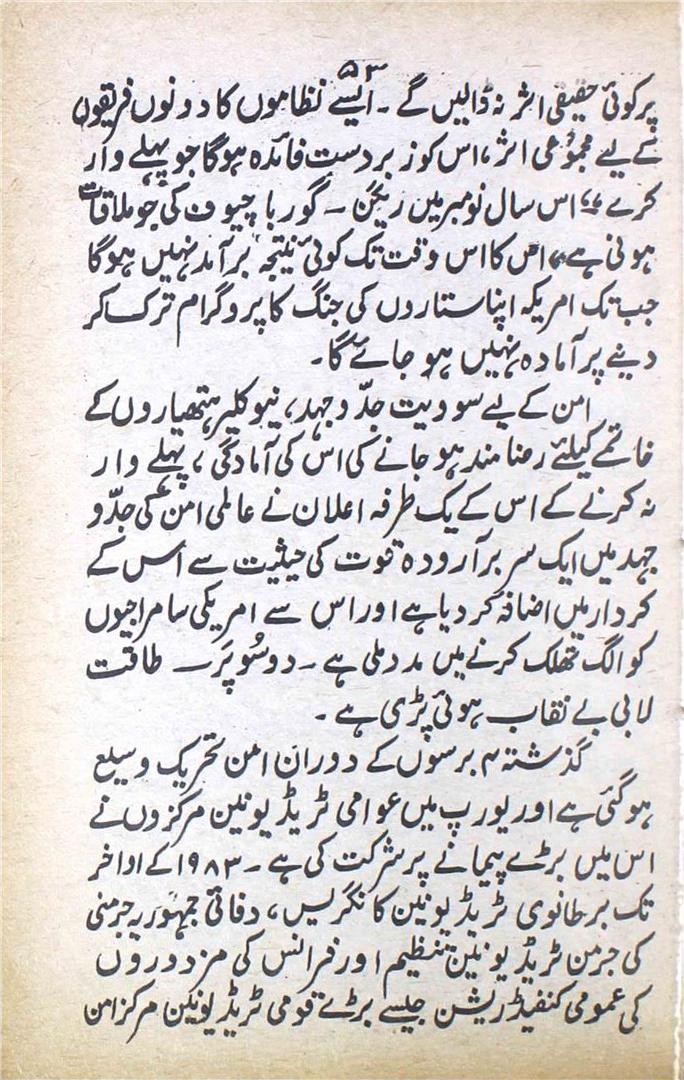 ۵۳
پر کوئی حقیقی اثر نہ ڈالیں گے ۔ ایسے نظاموں کا دونوں فریقوں
کے لیے مجموعی اثر، اس کو زبردست فائدہ ہوگا جو پہلے وار
کرے“ اس سال نومبر میں ریگن ۔ گورباچیوف کی جو ملاقات
ہونی ہے، اس کا اس وقت تک کوئی نتیجہ برآمد نہیں ہوگا
جب تک امریکہ اپنا ستاروں کی جنگ کا پروگرام ترک کر
دینے پر آمادہ نہیں ہو جائے گا۔
امن کے لیے سوویت جدّوجہد، نیوکلیر ہتھیاروں کے
خاتمے کیلئے رضامند ہو جانے کی اس کی آمادگی، پہلے وار
نہ کرنے کے اس کے یک طرفہ اعلان نے عالمی امن کی جدّو
جہد میں ایک سربرآرودہ قوت کی حیثیت سے اس کے
کردار میں اضافہ کر دیا ہے اور اس سے امریکی سامراجیوں
کو الگ تھلگ کرنے میں مدد ملی ہے ۔ دو سُوپَر ۔ طاقت
لابی بے نقاب ہوئی پڑی ہے ۔
گذشتہ ۳ برسوں کے دوران امن تحریک وسیع
ہو گئی ہے اور یورپ میں عوامی ٹریڈ یونین مرکزوں نے
اس میں بڑے پیمانے پر شرکت کی ہے ۔ ۱۹۸۳ کے اواخر
تک برطانوی ٹریڈ یونین کانگریس، وفاقی جمہوریہ جرمنی
کی جرمن ٹریڈ یونین تنظیم اور فرانس کی مزدوروں
کی عمومی کنفیڈریشن جیسے بڑے قومی ٹریڈ یونین مرکز امن